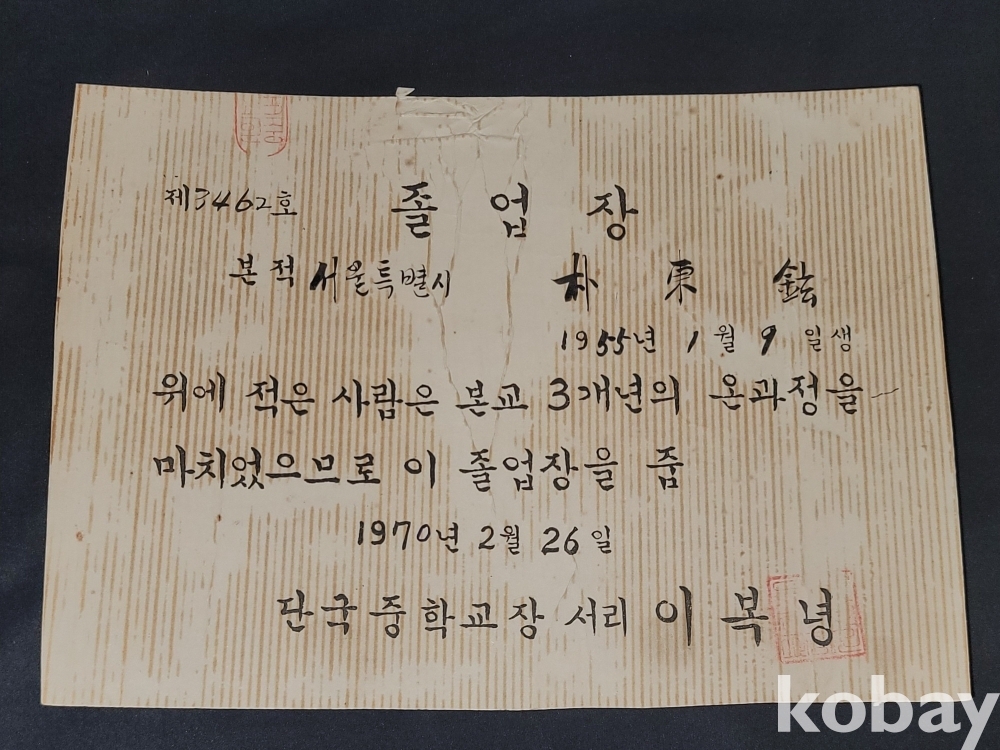 제3462호
졸업장
본적 서울특별시 朴東鉉
1955년 1월 9일생
위에 적은 사람은 본교 3개년의 온과정을
마치었으므로 이 졸업장을 줌
1970년 2월 26일
단국중학교장 서리 이복녕
kobay